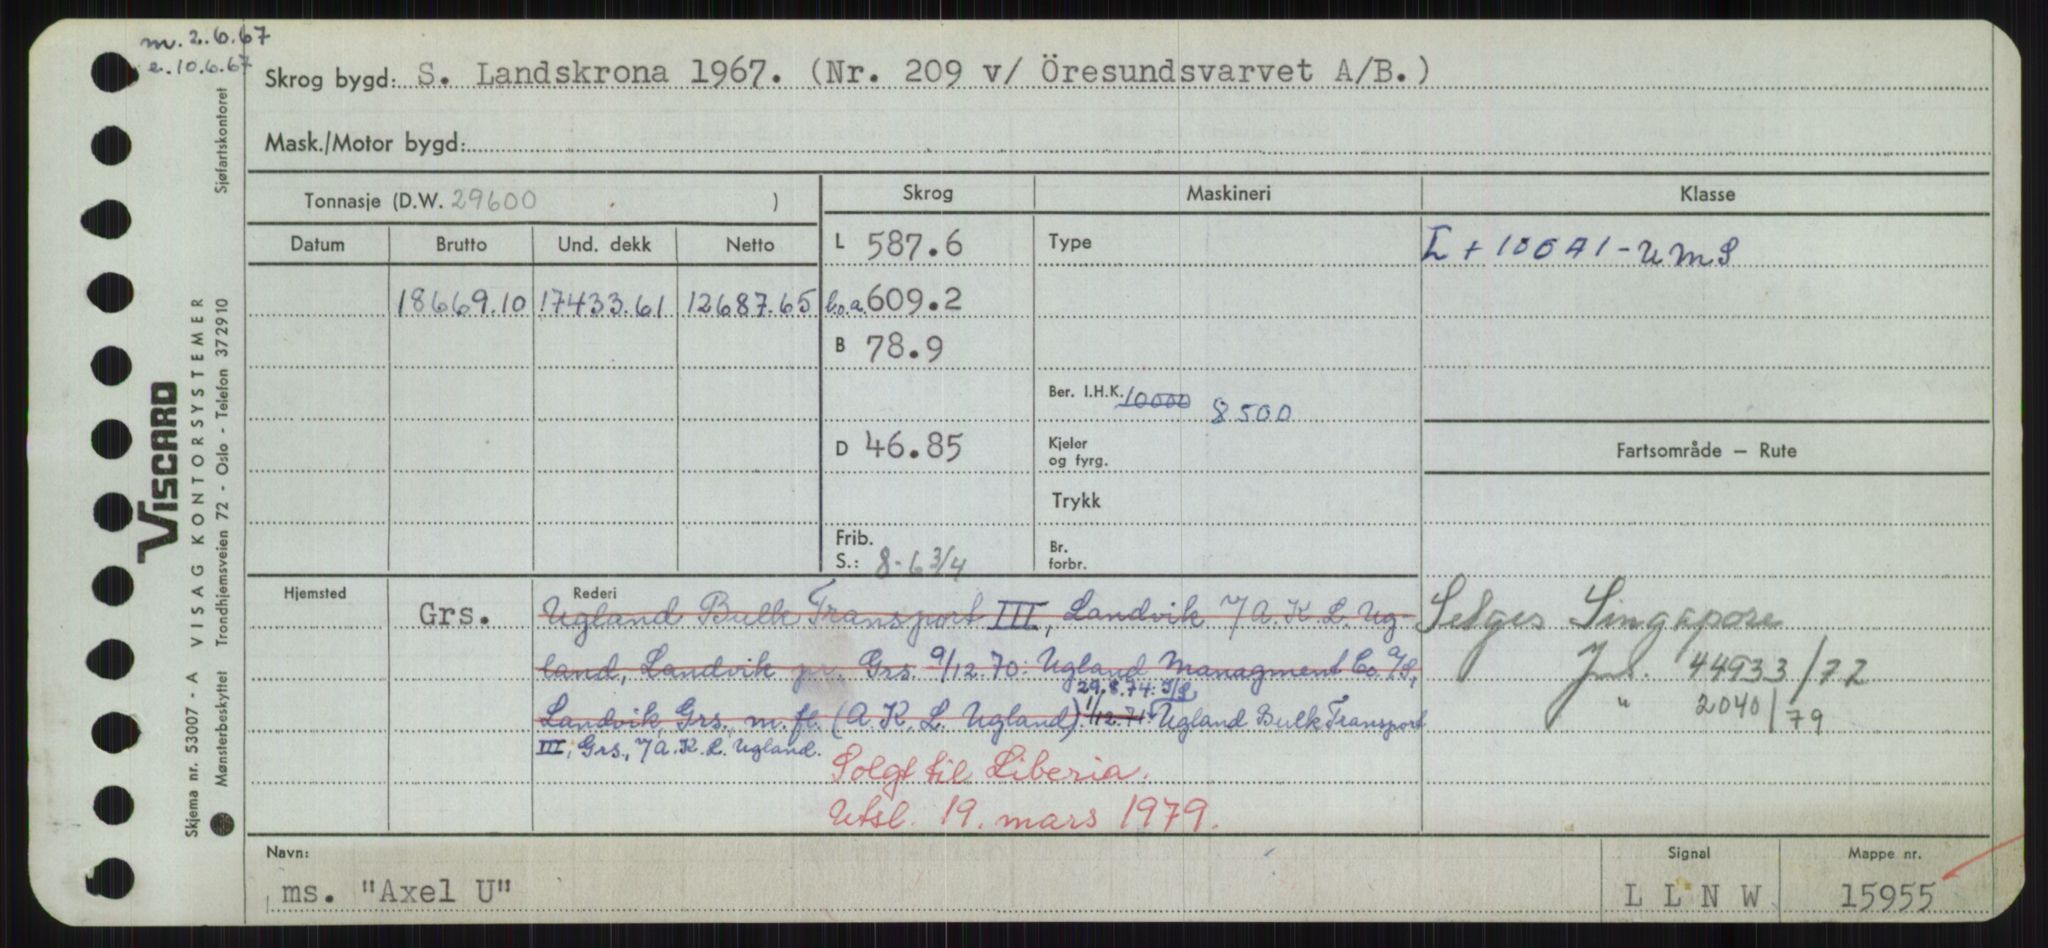 m. 2.6.67
e. 10.6.67
Skrog bygd: S. Landskrona 1967. (Nr. 209 v/ Öresundsvarvet A/B.)
Mask./Motor bygd:
Tonnasje (D.W. 29600 )
Skrog Maskineri Klasse
Datum Brutto Und. dekk Netto
L 587.6 Type I + 10 0 A1 - U M S
18669.10 17433.61 12687.65 l.o.a. 609.2
B 78.9
Ber. I.H.K. 10000 8500
D 46.85 Kjeler og fyrg.
Fartsområde – Rute
Trykk
Frib. S.: 8-6 3/4 Br. forbr.
Hjemsted Rederi
Grs. Ugland Bulk Transport III, Landvik /A. K. L. Ug-
land, Landvik pr. Grs. 9/12.70: Ugland Managment Co. A/S,
29.8.74: I/S
Landvik, Grs., m. fl. (A. K. L. Ugland) 1/12.71: Ugland Bulk Transport
III, Grs., /A. K. L. Ugland.
Solgt til Liberia.
Utsl. 19. mars 1979.
Selges Singapore
Jnl. 44933/77
" 2040/79
Navn: Signal Mappe nr.
ms. "Axel U" L L N W 15955
VISCARD
Skjema nr. 53007 - A VISAG KONTORSYSTEMER
Mønsterbeskyttet Trondhjemsveien 72 - Oslo - Telefon 372910 Sjøfartskontoret